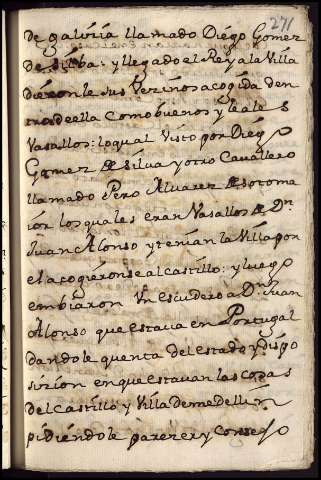 271
de galizia llamado Diego Gomez
de Silba: y llegado el Rey a la Villa
dieronle sus Vezinos acogida den
tro de ella como buenos y leales
Vasallos: lo qual Visto por Diego
Gomez de Silva y otro Cavallero
llamado Pero Alvarez de sotoma
ior los quales eran Vasallos de Dn
Juan Alonso y tenian la Villa por
el acogieronse al castillo: y luego
embiaron Un escudero a Dn Juan
Alonso que estava en Portugal
dandole quenta del estado y dispo
sizion en que estavan las cosas
del castillo y Villa de medellin
pidiendole parezer y consejo